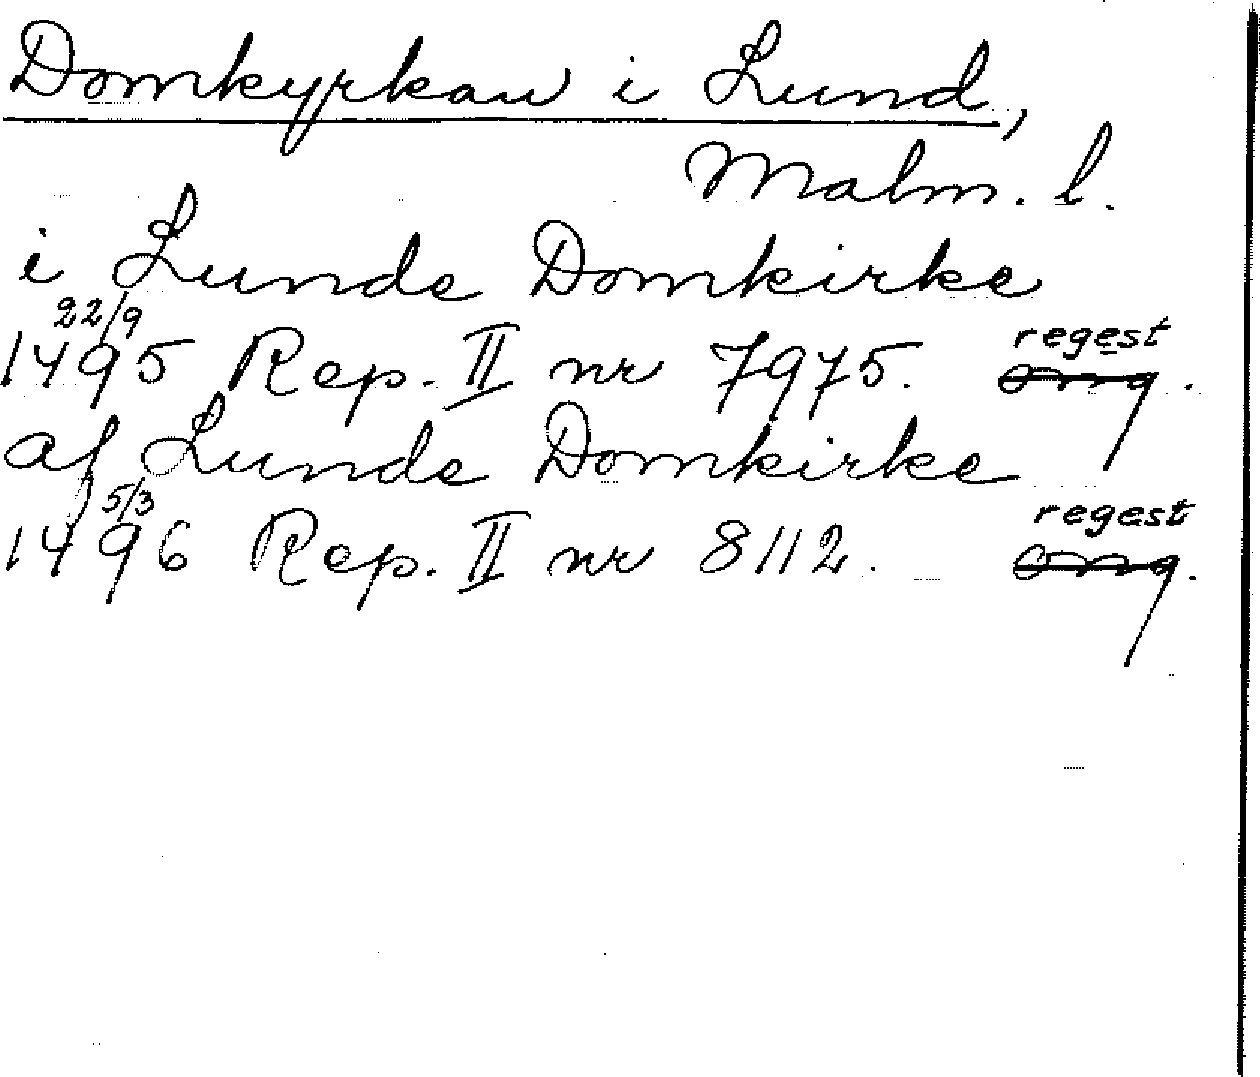 Domkyrkan i Lund,
Malm. l.
i Lunde Domkirke
22/9
1495 Rep. II nr 7975. regest
af Lunde Domkirke
5/3
1496 Rep. II nr 8112. regest